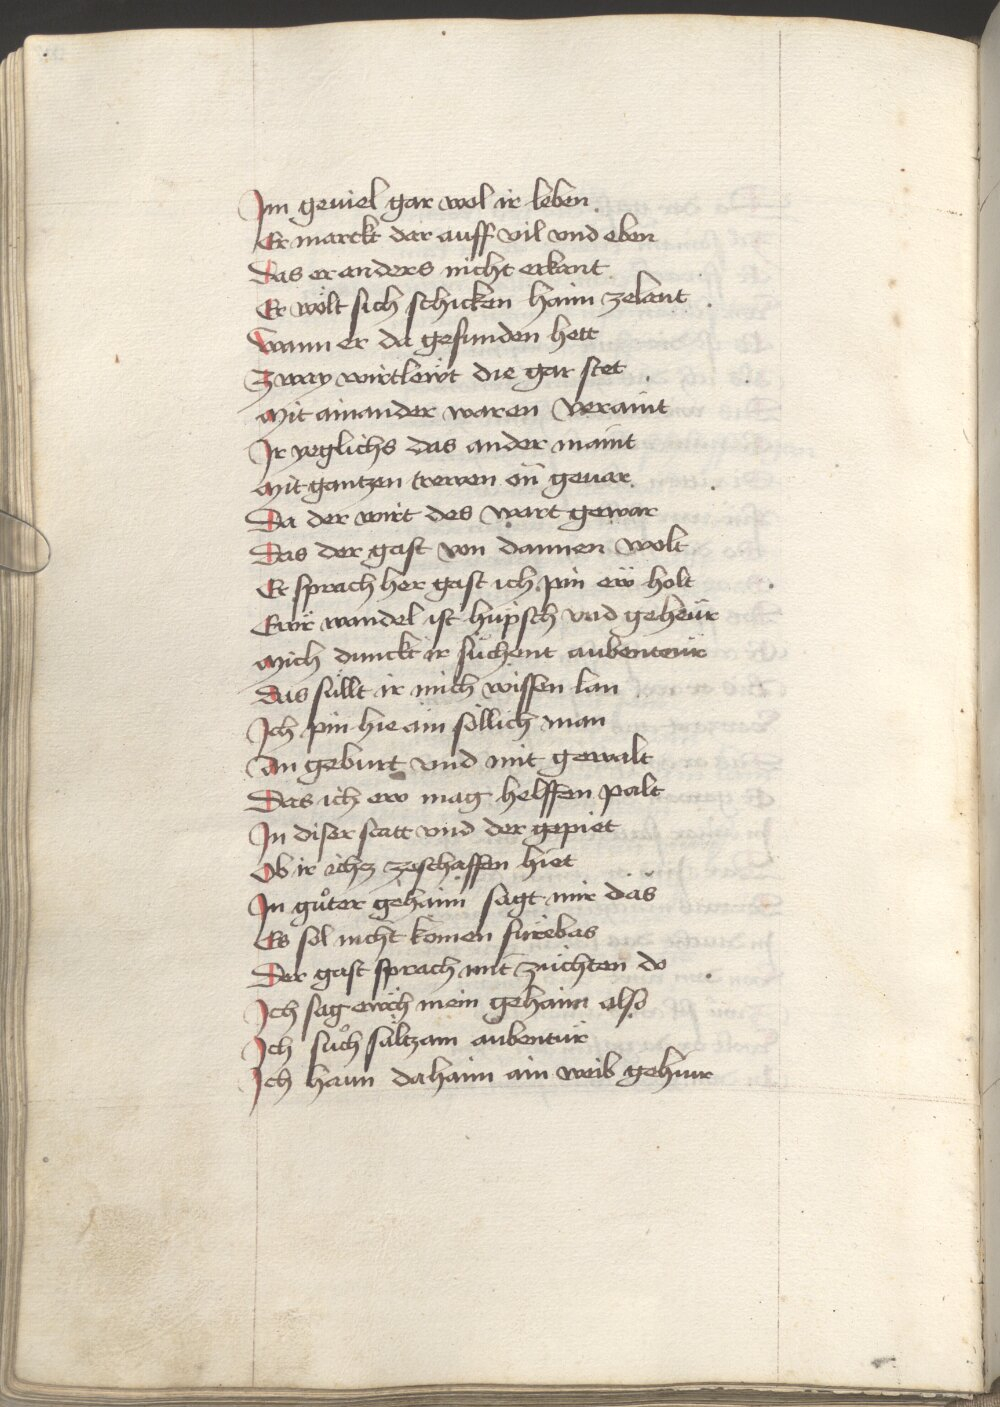 Im geuiel gar wol ir leben
Er marckt dar auff vil vnd eben
Das er anders nicht erkant
Er wölt sich schicken haim zelant
Wann er da gefunden hett
Zway wirtlewt die gar stet
Mit ainander waren veraint
Ir yeglichs das ander maint
Mit gantzen trewen on geuar
Da der wirt des wart gewar
Das der gast von dannen wolt
Er sprach her gast ich pin ew holt
Ewr wandel ist hüpsch vnd geheür
Mich dunckt ir süchent aubenteür
Das süllt ir mich wissen lan
Ich pin hie ain söllich man
An geburt vnd mit gewalt
Das ich ew mag helffen palt
In diser statt vnd der gepiet
Ob ir ichcz zeschaffen hiet
In guͦter gehaim sagt mir das
Es sol nicht komen fürebas
Der gast sprach mit züchten do
Ich sag ewch mein gehaim also
Ich suͦch sältzam aubentür
Ich haun dahaim ain weib gehiur